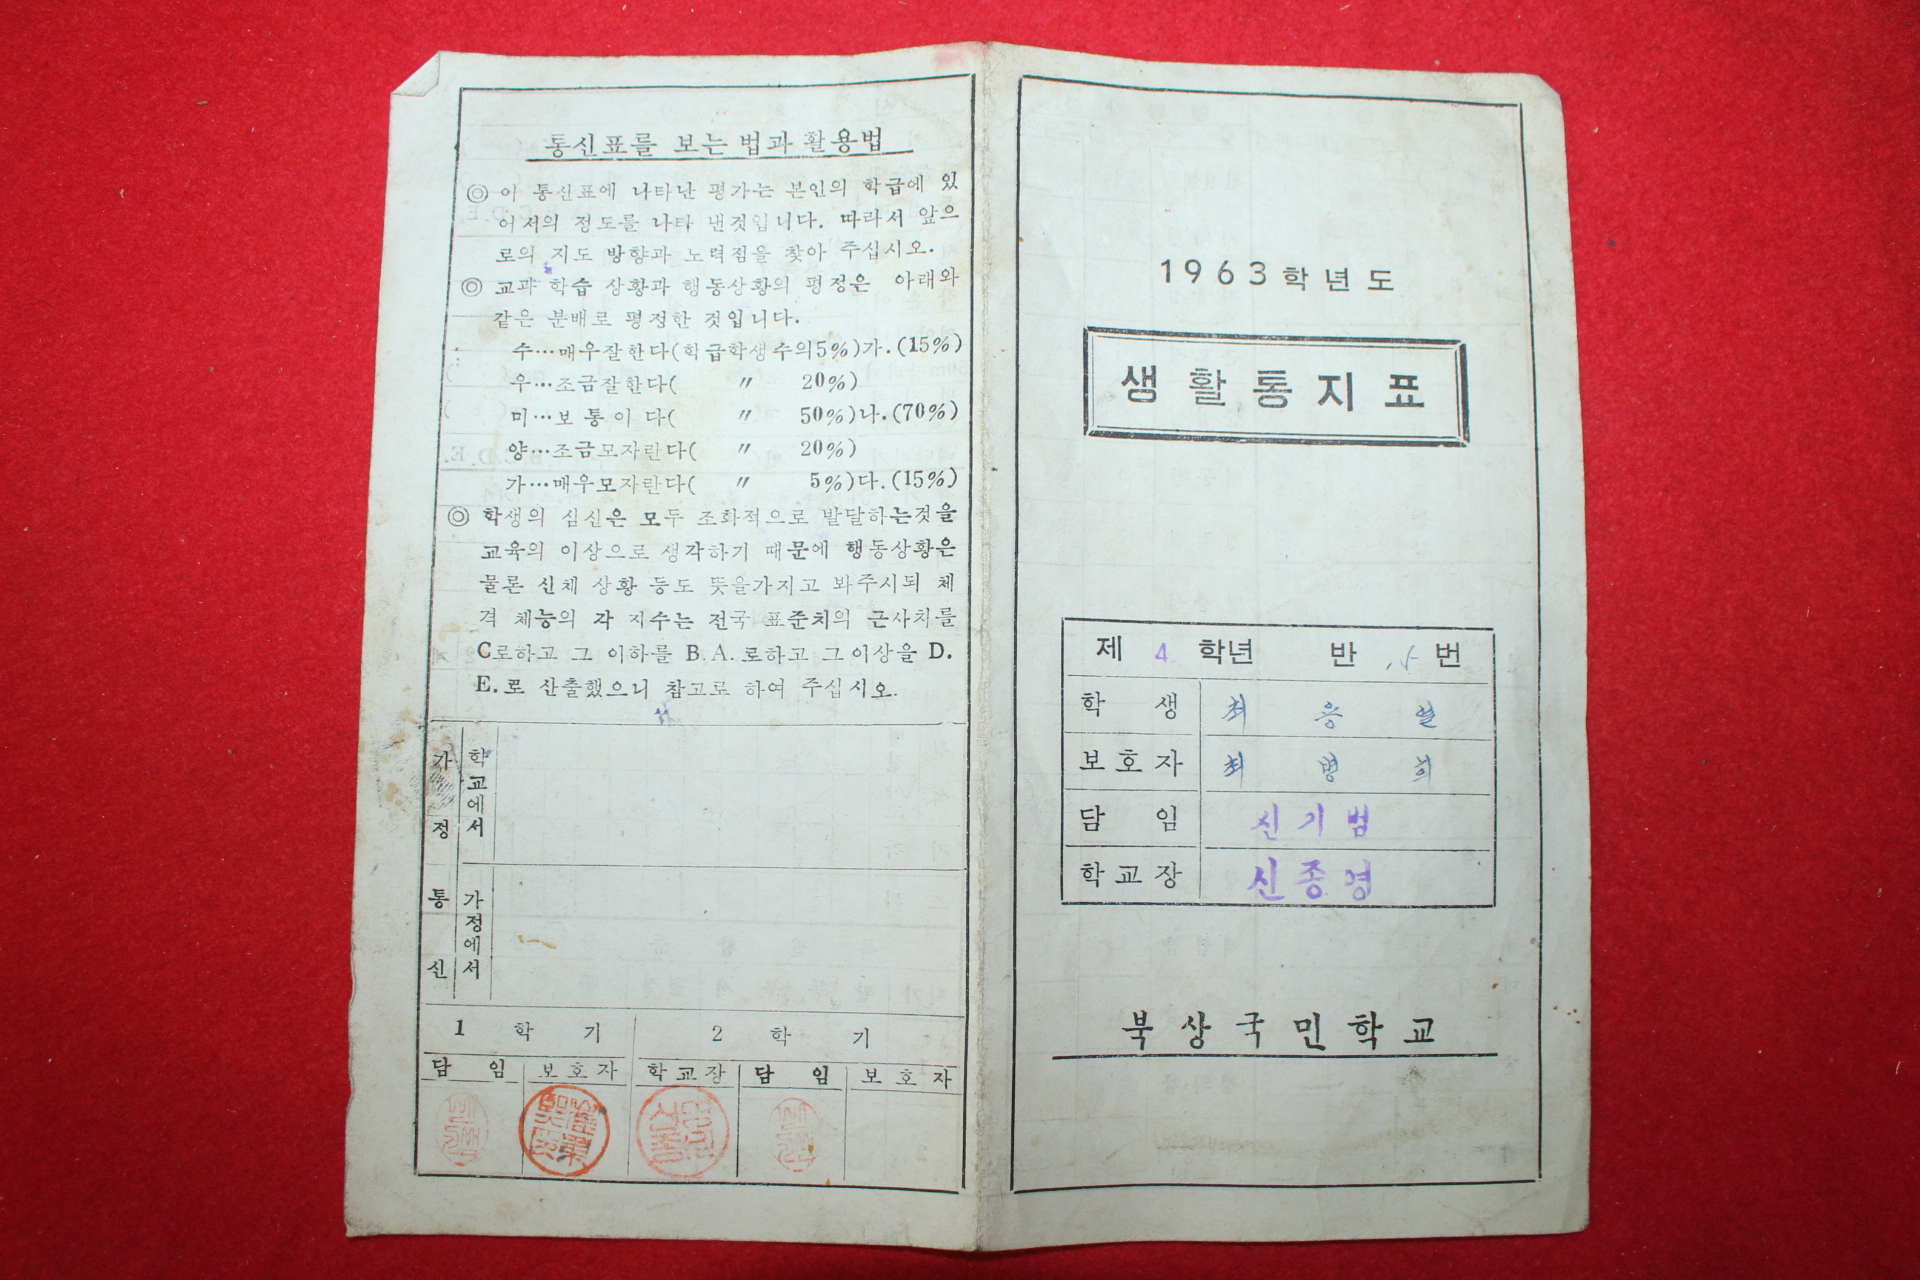 통신표를 보는 법과 활용법
◎ 이 통신표에 나타난 평가는 본인의 학급에 있
어서의 정도를 나타 낸것입니다. 따라서 앞으
로의 지도 방향과 노력점을 찾아 주십시오.
◎ 교과 학습 상황과 행동상황의 평정은 아래와
같은 분배로 평정한 것입니다.
수…매우잘한다(학급학생수의5%)가.(15%)
우…조금잘한다( 〃 20%)
미…보통이다( 〃 50%)나.(70%)
양…조금모자란다( 〃 20%)
가…매우모자란다( 〃 5%)다.(15%)
◎ 학생의 심신은 모두 조화적으로 발달하는것을
교육의 이상으로 생각하기 때문에 행동상황은
물론 신체 상황 등도 뜻을가지고 봐주시되 체
격 체능의 각 지수는 전국 표준치의 근사치를
C로하고 그 이하를 B.A.로하고 그이상을 D.
E.로 산출했으니 참고로 하여 주십시오.
가정통신
학교에서
가정에서
1 학 기 2 학 기
담 임 보호자 학교장 담 임 보호자
1963학년도
생활통지표
제 4 학년 반 번
학 생 최 응 열
보호자 최 병 희
담 임 신기범
학교장 신종경
북상국민학교